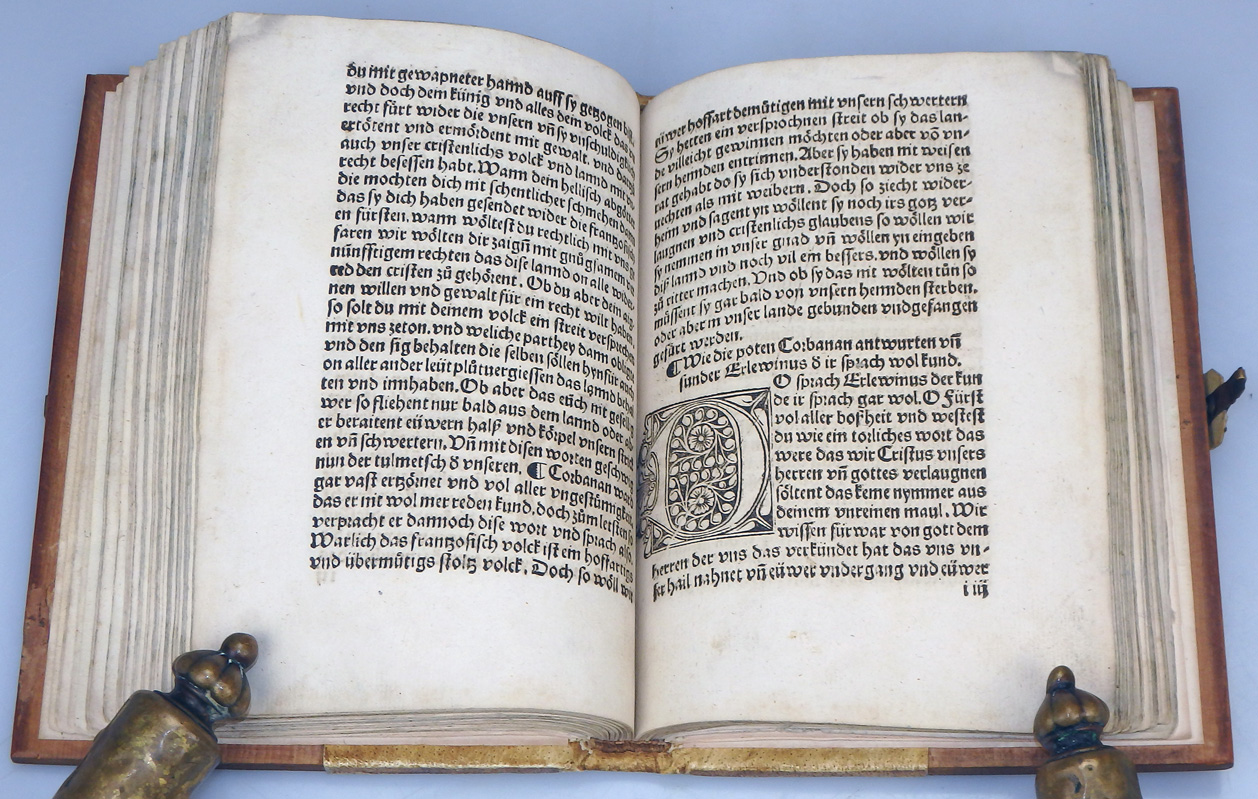 du mit gewapneter hannd auff sy getzogen
vnd doch dem künig vnd alles dem volck das
recht fürt wider die vnsern vn̄ sy vnschuldig
ertötent vnd ermördent mit gewalt. vnd dartzů
auch vnser cristenlichs volck vnd lannd mit
recht besessen habt. Wann dein hellisch abgöt
die mochten dich mit schentlicher schmehen dann
das sy dich haben gesendet wider die frantzosisch
en fürsten. wann wöltest du rechtlich mit vns
faren wir wölten dir zaigñ mit gnůgsamen
nünfftigem rechten das dise lannd on alle wider
red den cristen zů gehörent. Ob du aber dem
nen willen vnd gewalt für ein recht wilt haben
so solt du mit deinem volck ein streit versprechen
mit vns zeton. vnd weliche parthey dann
vnd den sig behalten die selben söllen hynfür auch
on aller ander leüt plůtuergiessen das lannd
ten vnd innhaben. Ob aber das eüch nit
wer so fliehent nur bald aus dem lannd oder
er beraitent eü wern halß vnd körpel vnsern
en vn̄ schwertern. Vn̄ mit disen worten geschwig
nun der tulmetsch ꝺ vnseren. ¶ Corbanan ward
gar vast ertzörnet vnd vol aller vngestümigkeit
das er nit wol mer reden kund. doch zům letsten
verpracht er dannoch dise wort vnd sprach also
Warlich das frantzosisch volck ist ein hoffartigs
vnd übermůtigs stoltz volck. Doch so wöll wir
eüwer hoffart demůtigen mit vnsern schwertern
Sy hetten ein versprochnen streit ob sy das lan-
de villeicht gewinnen möchten oder aber vō vn-
sern hennden entrinnen. Aber sy haben mit weisen
rat gehabt do sy sich vnderstonden wider vns ze
vechten als mit weibern. Doch so ziecht wider-
heim vnd sagent yn wöllent sy noch irs gotz ver-
laugnen vnd cristenlichs glaubens so wöllen wir
sy nemmen in vnser gnad vn̄ wöllen yn eingeben
diß land vnd noch vil ein bessers. vnd wöllen sy
zů ritter machen. Vnd ob sy das nit wölten tůn so
müssent sy gar bald von vnsern hennden sterben.
oder aber in vnser lande gebunden vnd gefangen
gefürt werden.
¶ Wie die poten Corbanan antwurten vn̄
sunder Erlewinus ꝺ ir sprach wol kund.
O sprach Erlewinus der kun
de ir sprach gar wol. O Fürst
vol aller boßheit vnd westest
du wie ein torliches wort das
were das wir Cristus vnsers
herren vn̄ gottes verlaugnen
söltent das keme nymmer aus
deinem vnreinen maul. Wir
wissen fürwar von gott dem
herren der vns das verkündet hat das vns vn-
ser hail nahnet vn̄ eüwer vndergang vnd eüwer
i iij